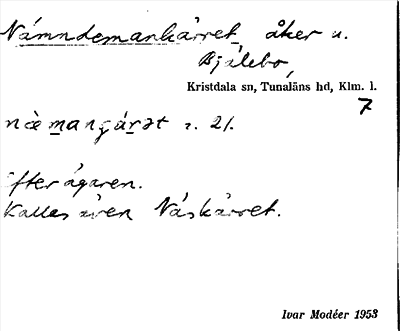 Nämndemankärret, åker u.
Bjälebo,
Kristdala sn, Tunaläns hd, Klm. l.
7
næmançárət n. 21.
Efter ägaren.
Kallas även Näskärret.
Ivar Modéer 1953